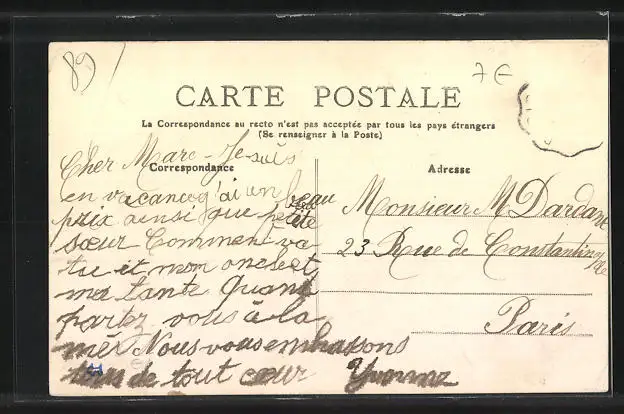 89
7 E
CARTE POSTALE
La Correspondance au recto n'est pas acceptée par tous les pays étrangers
(Se renseigner à la Poste)
Correspondance
Cher Marc - Je suis
en vacances j'ai un beau
prix ainsi que petite
sœur Comment va
tu et mon oncle et
ma tante Quand
partez vous à la
mer Nous vous embrassons
tous de tout cœur Yvonne
Adresse
Monsieur M Dardane
23 Rue de Constantinople
Paris